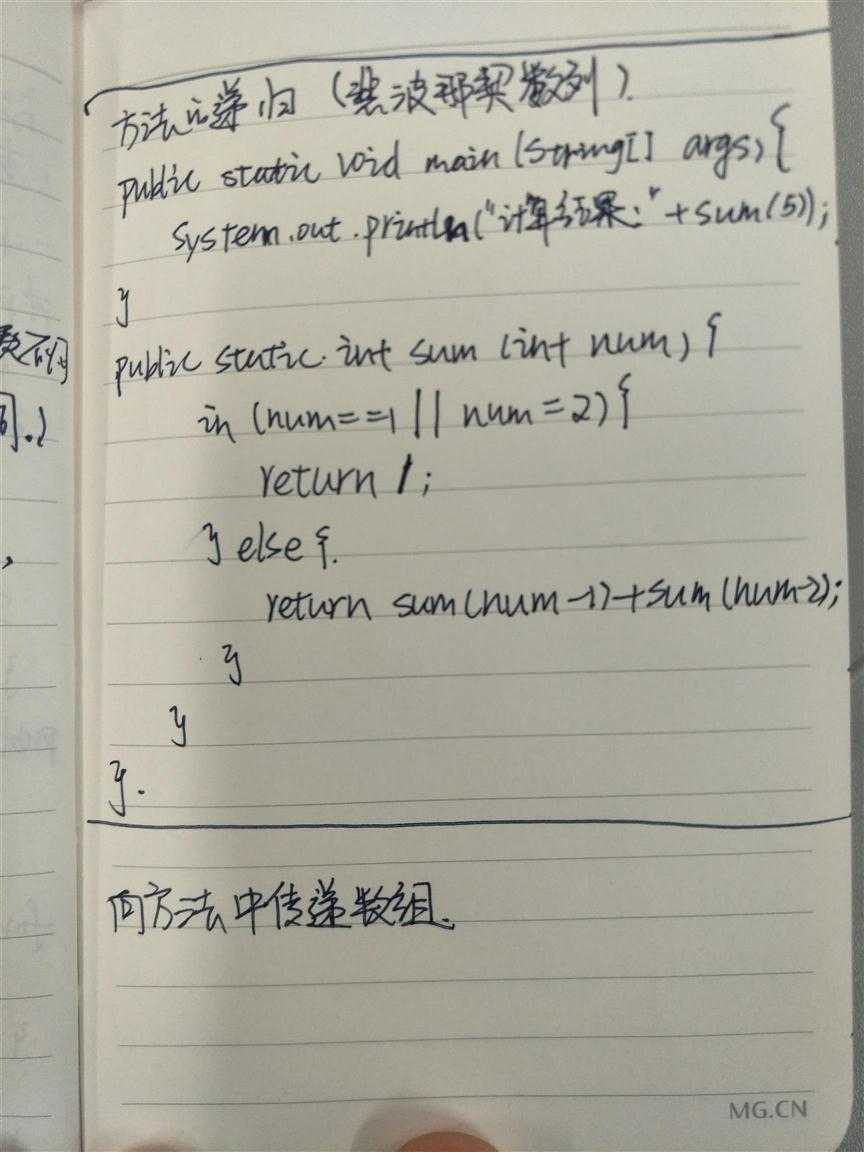 方法的递归 (斐波那契数列).
public static void main (String[] args) {
System.out.println("计算结果:"+sum(5));
}
public static int sum (int num) {
in (num==1 || num=2) {
return 1;
} else {.
return sum(num-1)+sum(num-2);
}
}
}.
向方法中传递数组.
MG.CN